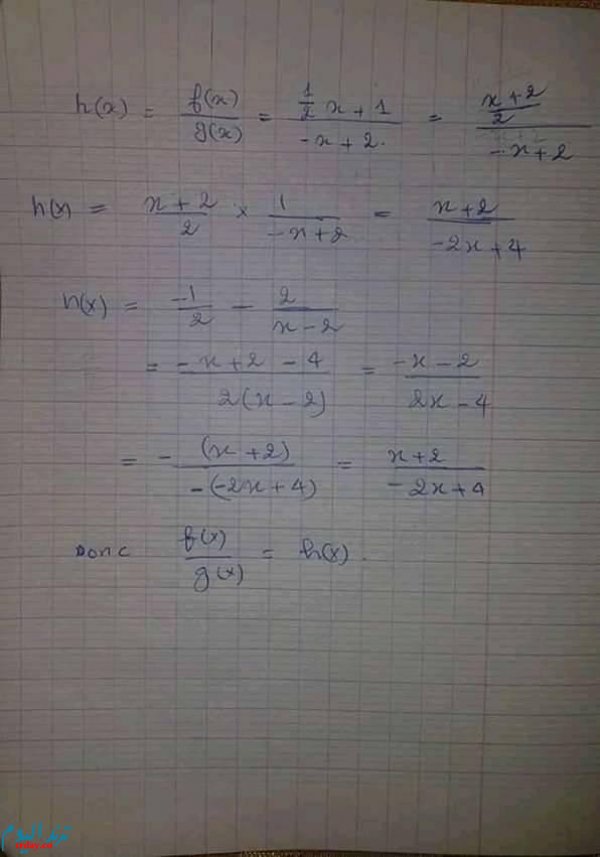 h(x) = f(x)/g(x) = (1/2 x + 1)/(-x + 2.) = ((x + 2)/2)/(-x + 2)
h(x) = (x + 2)/2 × 1/(-x + 2) = (x + 2)/(-2x + 4)
h(x) = -1/2 - 2/(x - 2)
= (-x + 2 - 4)/(2(x - 2)) = (-x - 2)/(2x - 4)
= - (x + 2)/(-(-2x + 4)) = (x + 2)/(-2x + 4)
Donc f(x)/g(x) = h(x).